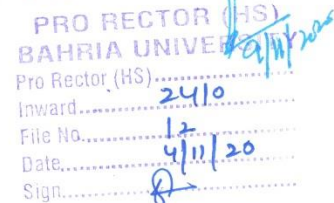 PRO RECTOR (HS)
BAHRIA UNIVERS
9/11/2020
Pro Rector (HS)
Inward 2410
File No. 12
Date 4/11/20
Sign